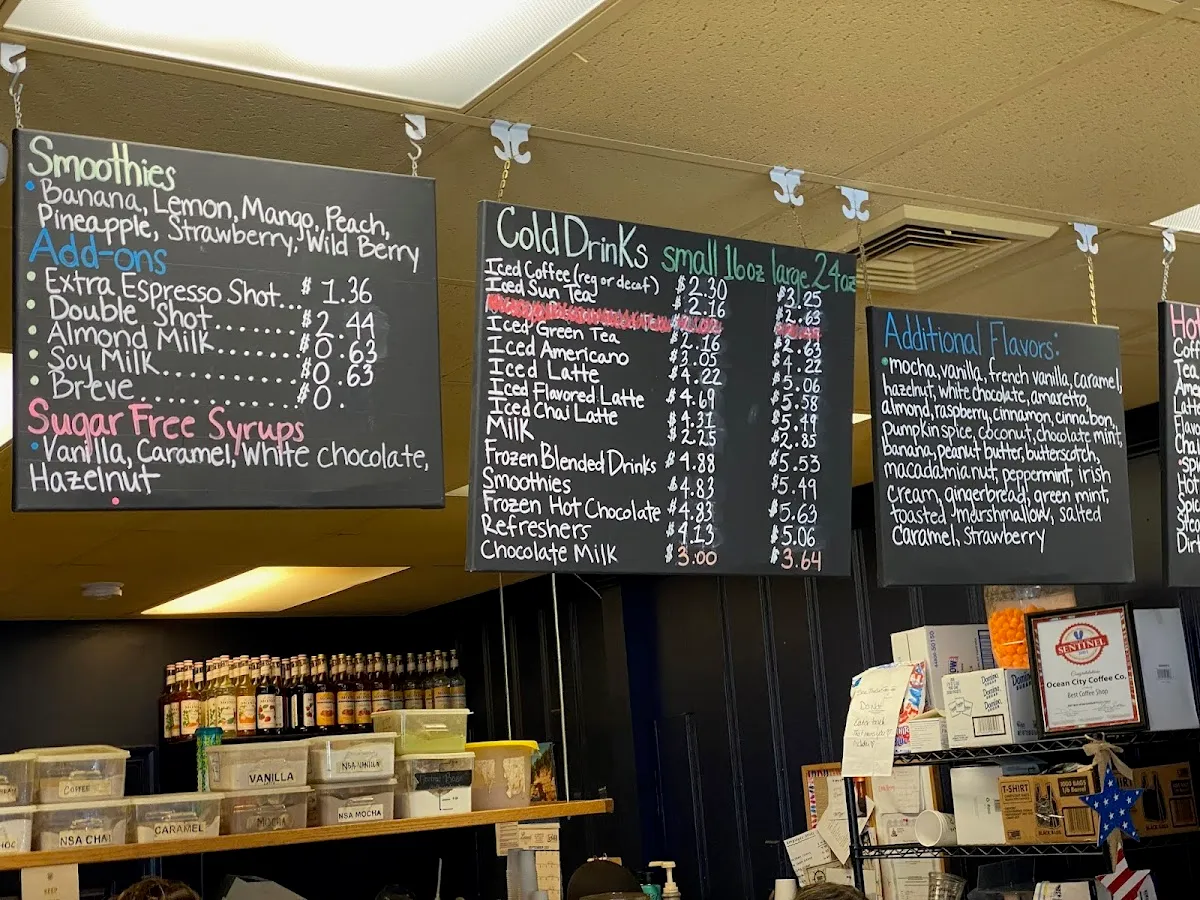 Smoothies
Banana, Lemon, Mango, Peach,
Pineapple, Strawberry, Wild Berry
Add-ons
Extra Espresso Shot... $1.36
Double Shot....... $2.44
Almond Milk....... $0.63
Soy Milk........... $0.63
Breve.............. $0.
Sugar Free Syrups
Vanilla, Caramel, White chocolate,
Hazelnut
Cold Drinks small 16oz large 24oz
Iced Coffee (reg or decaf) $2.30 $3.25
Iced Sun Tea $2.16 $2.63
Iced Green Tea $2.16 $2.63
Iced Americano $3.05 $4.22
Iced Latte $4.22 $5.06
Iced Flavored Latte $4.69 $5.58
Iced Chai Latte $4.31 $5.49
Milk $2.25 $2.85
Frozen Blended Drinks $4.88 $5.53
Smoothies $4.83 $5.49
Frozen Hot Chocolate $4.83 $5.63
Refreshers $4.13 $5.06
Chocolate Milk $3.00 $3.64
Additional Flavors:
mocha, vanilla, french vanilla, caramel,
hazelnut, white chocolate, amaretto,
almond, raspberry, cinnamon, cinnabon,
pumpkin spice, coconut, chocolate mint,
banana, peanut butter, butterscotch,
macadamia nut, peppermint, irish
cream, gingerbread, green mint,
toasted marshmallow, salted
Caramel, Strawberry
SENTINEL
Ocean City Coffee Co.
Best Coffee Shop
Domino
T-SHIRT
VANILLA
NSA-VANILLA
COFFEE
NSA CHAI
CARAMEL
MOCHA
NSA MOCHA